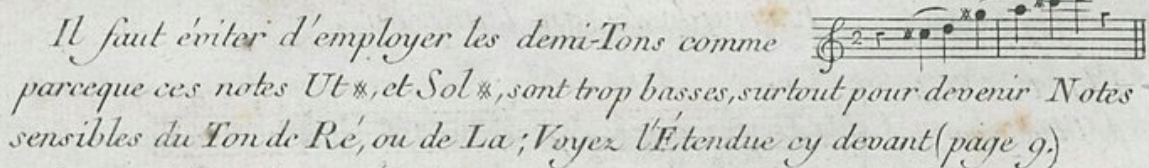 Il faut éviter d'employer les demi-Tons comme
parceque ces notes Ut ⁕, et Sol ⁕, sont trop basses, surtout pour devenir Notes
sensibles du Ton de Ré, ou de La ; Voyez l'Étendue cy devant (page 9.)